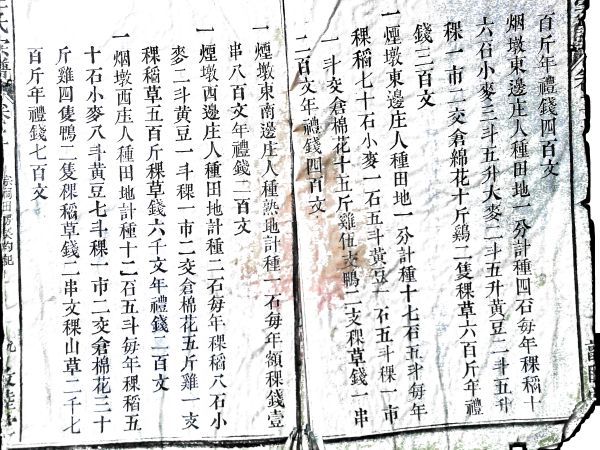 百斤年禮錢四百文
烟墩東邊庄人種田地一分計種四石每年稞稻十
六石小麥三斗五升大麥二斗五升黄豆二斗五升
稞一市二交倉綿花十斤鷄二隻稞草六百斤年禮
錢三百文
一煙墩東邊庄人種田地一分計種十七石五斗每年
稞稻七十石小麥一石五斗黄豆一石五斗稞一市
一斗交倉棉花十五斤雞伍支鴨二支稞草錢一串
二百文年禮錢四百文
一煙墩東南邊庄人種熟地計種一石每年額稞錢壹
串八百文年禮錢二百文
一煙墩西邊庄人種田地計種二石每年稞稻八石小
麥二斗黄豆一斗稞一市二交倉棉花五斤雞一支
稞稻草五百斤稞草錢六千文年禮錢二百文
一烟墩西庄人種田地計種十二石五斗每年稞稻五
十石小麥八斗黄豆七斗稞一市二交倉棉花三十
斤雞四隻鴨二隻稞稻草錢二串文稞山草二千七
百斤年禮錢七百文
氏宗譜